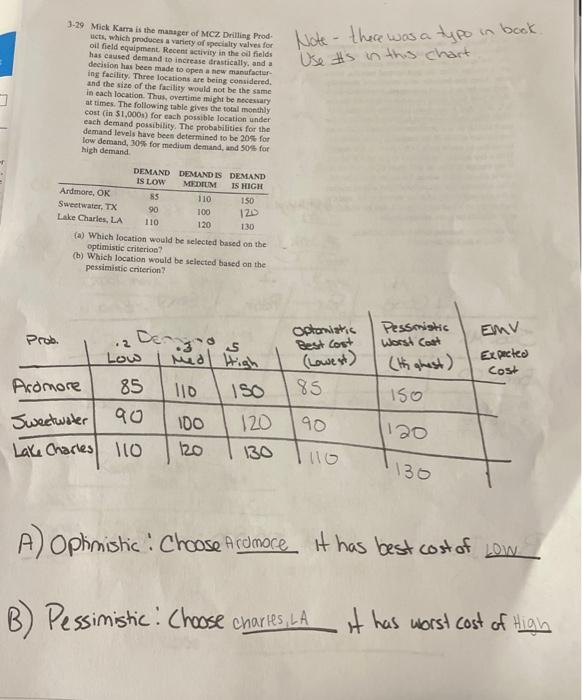 3-29 Mick Karra is the manager of MCZ Drilling Prod-
ucts, which produces a variety of specialty valves for
oil field equipment. Recent activity in the oil fields
has caused demand to increase drastically, and a
decision has been made to open a new manufactur-
ing facility. Three locations are being considered,
and the size of the facility would not be the same
in each location. Thus, overtime might be necessary
at times. The following table gives the total monthly
cost (in $1,000s) for each possible location under
each demand possibility. The probabilities for the
demand levels have been determined to be 20% for
low demand, 30% for medium demand, and 50% for
high demand.
Note - there was a typo in book.
Use #s in this chart
DEMAND DEMAND IS DEMAND
IS LOW MEDIUM IS HIGH
Ardmore, OK 85 110 150
Sweetwater, TX 90 100 120
Lake Charles, LA 110 120 130
(a) Which location would be selected based on the
optimistic criterion?
(b) Which location would be selected based on the
pessimistic criterion?
Prob. .2 Demand .3 .5
Low Med High
Optomistic Best Cost (Lowest)
Pessmistic Worst Cost (Highest)
EMV Expected Cost
Ardmore 85 110 150 85 150
Sweetwater 90 100 120 90 120
Lake Charles 110 120 130 110 130
A) Optimistic: Choose Ardmore It has best cost of LOW
B) Pessimistic: Choose charles, LA It has worst cost of High